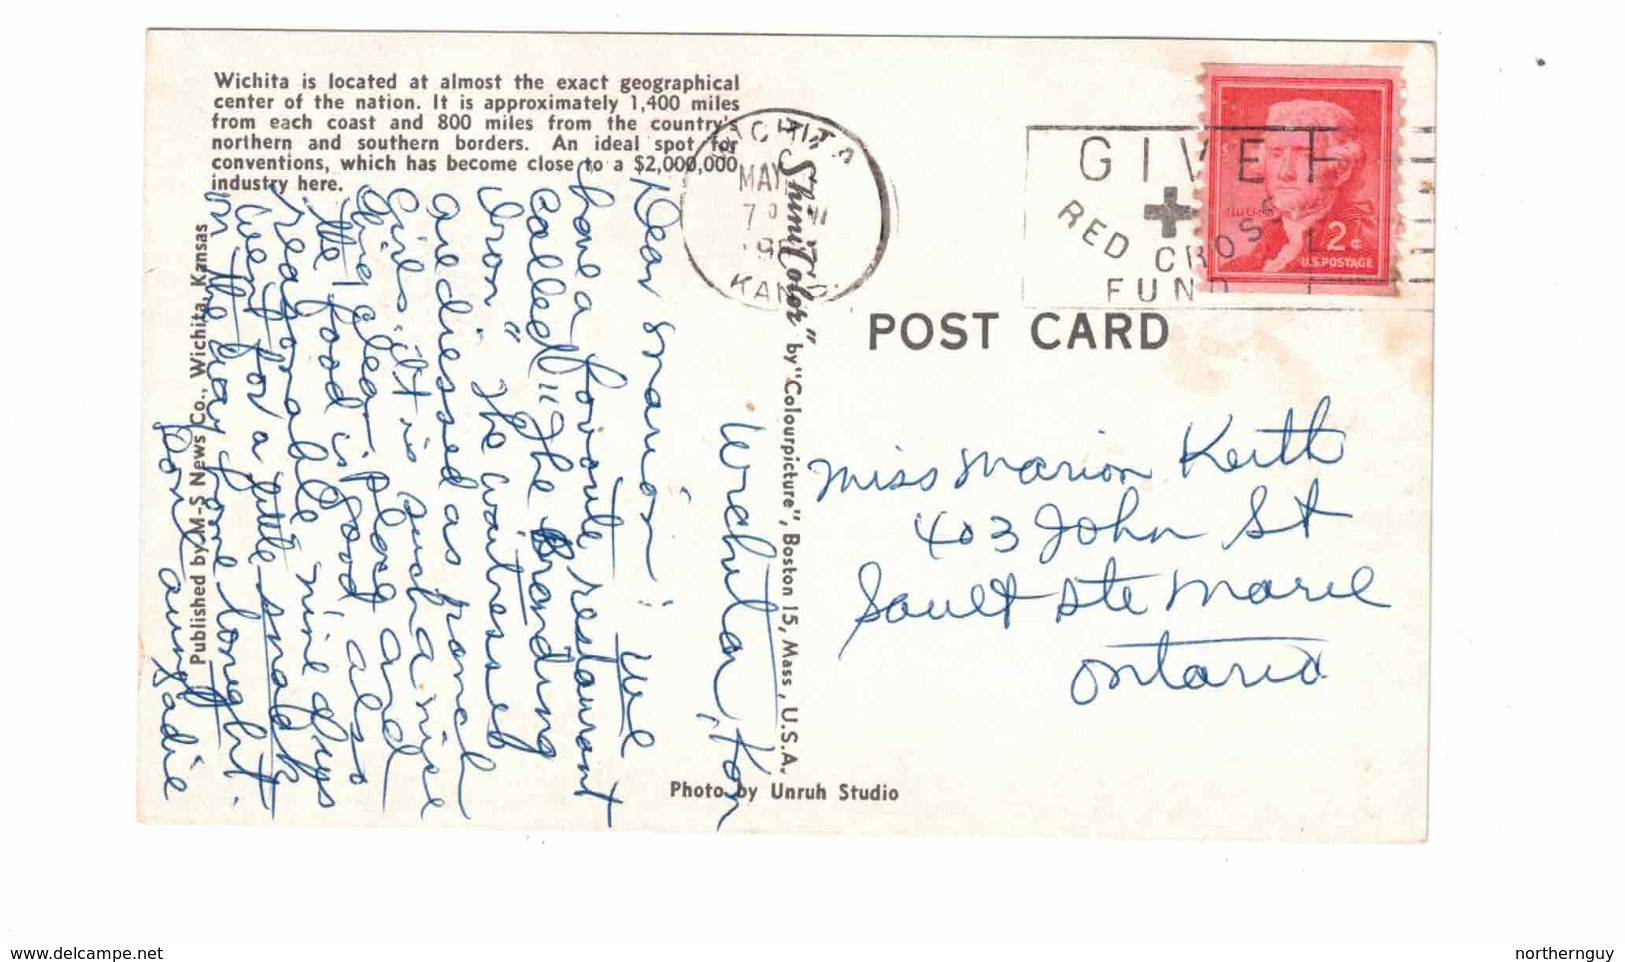 Wichita is located at almost the exact geographical
center of the nation. It is approximately 1,400 miles
from each coast and 800 miles from the country's
northern and southern borders. An ideal spot for
conventions, which has become close to a $2,000,000
industry here.
WICHITA
MAY
7
KANS
GIVE
RED CROSS
FUND
2¢
U.S. POSTAGE
POST CARD
Wichita, Kan
Dear Marion: We
have a favorite restaurant
called "The Branding
Iron" The waitresses
are dressed as ranch
Girls. It is such a nice
place and
the food is good also
reasonable
went for a little snack
in the day
Love
Published by M-S News Co., Wichita, Kansas
"ShiniColor" by "Colourpicture", Boston 15, Mass., U.S.A.
Photo by Unruh Studio
Miss Marion Keith
403 John St
Sault Ste Marie
Ontario
www.delcampe.net
northernguy